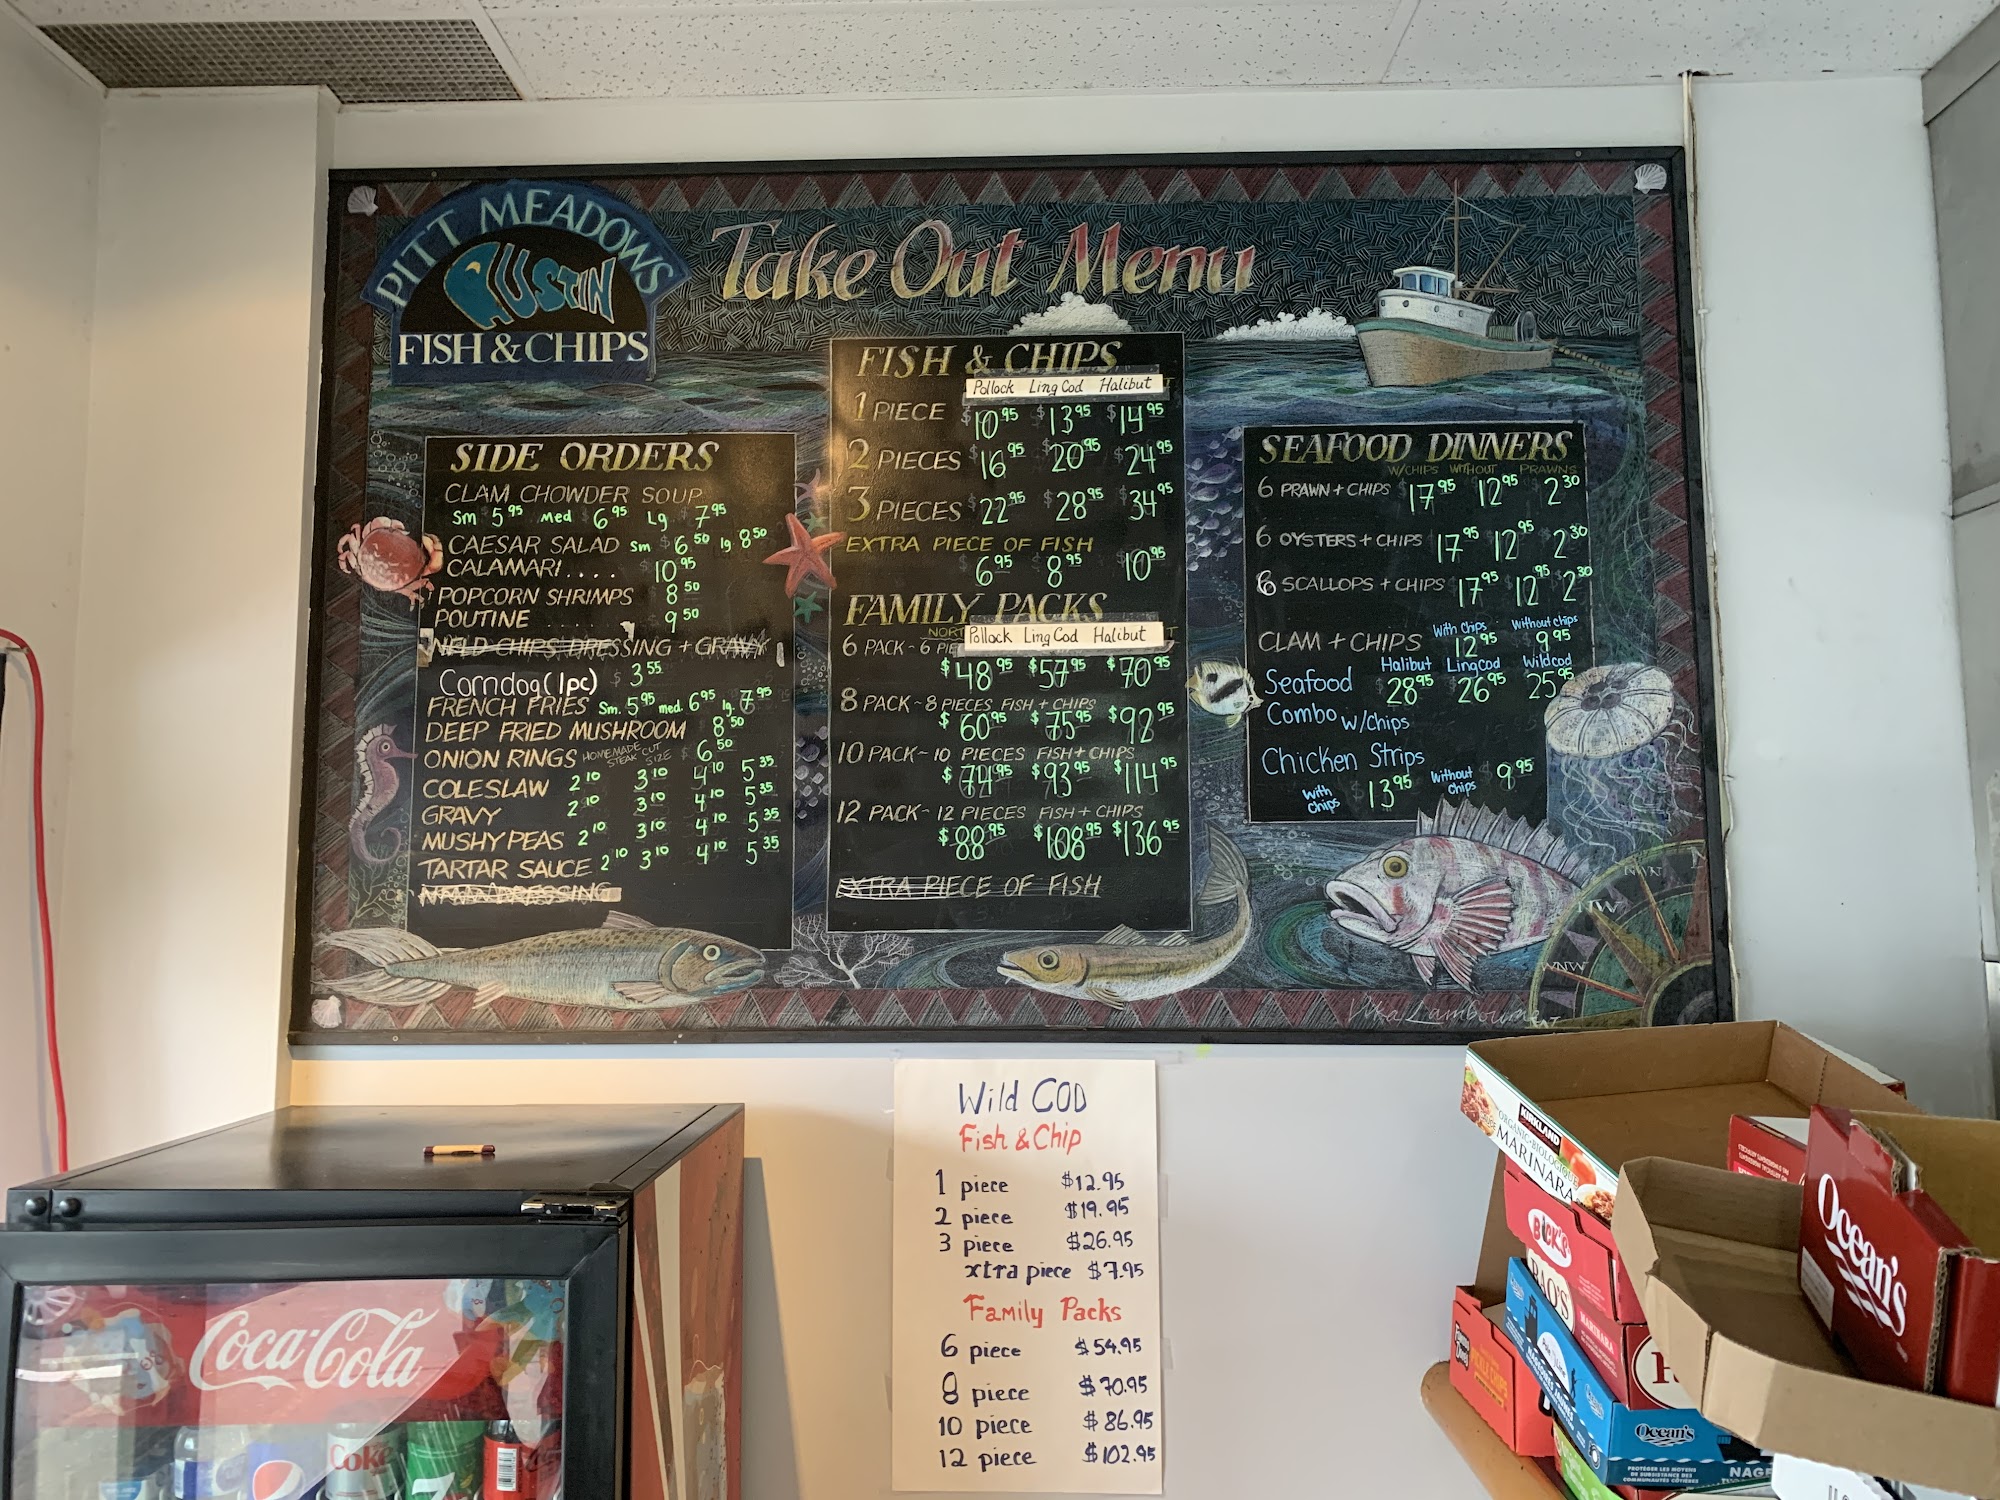 PITT MEADOWS
AUSTIN
FISH & CHIPS
Take Out Menu
SIDE ORDERS
CLAM CHOWDER SOUP
Sm $5.95 Med $6.95 Lg $7.95
CAESAR SALAD Sm $6.50 lg. 8.50
CALAMARI.... $10.95
POPCORN SHRIMPS 8.50
POUTINE 9.50
NFLD CHIPS DRESSING + GRAVY
Corndog (1pc) $3.55
FRENCH FRIES Sm. 5.95 med. 6.95 lg. 7.95
DEEP FRIED MUSHROOM 8.50
ONION RINGS HOMEMADE CUT STEAK SIZE $6.50
COLESLAW 2.10 3.10 4.10 5.35
GRAVY 2.10 3.10 4.10 5.35
MUSHY PEAS 2.10 3.10 4.10 5.35
TARTAR SAUCE 2.10 3.10 4.10 5.35
DRESSING
FISH & CHIPS
Pollock Ling Cod Halibut
1 PIECE $10.95 $13.95 $14.95
2 PIECES $16.95 20.95 $24.95
3 PIECES $22.95 $28.95 34.95
EXTRA PIECE OF FISH
$6.95 $8.95 10.95
FAMILY PACKS
Pollock Ling Cod Halibut
6 PACK ~ 6 PIE
$48.95 $57.95 $70.95
8 PACK ~ 8 PIECES FISH + CHIPS
$60.95 $75.95 $92.95
10 PACK ~ 10 PIECES FISH + CHIPS
$74.95 $93.95 $114.95
12 PACK ~ 12 PIECES FISH + CHIPS
$88.95 $108.95 $136.95
EXTRA PIECE OF FISH
SEAFOOD DINNERS
W/CHIPS WITHOUT PRAWNS
6 PRAWN + CHIPS 17.95 12.95 2.30
6 OYSTERS + CHIPS 17.95 12.95 2.30
6 SCALLOPS + CHIPS 17.95 12.95 2.30
With Chips Without chips
CLAM + CHIPS 12.95 9.95
Halibut Lingcod Wildcod
Seafood 28.95 26.95 25.95
Combo w/chips
Chicken Strips
With chips 13.95 Without chips 9.95
NWN
NW
WNW
Vika Lambourne
Wild COD
Fish & Chip
1 piece $12.95
2 piece $19.95
3 piece $26.95
xtra piece $7.95
Family Packs
6 piece $54.95
8 piece $70.95
10 piece $86.95
12 piece $102.95
Coca-Cola
Coke
7
KIRKLAND
ORGANIC•BIOLOGIQUE
MARINARA
BICK'S
RAO'S
MARINARA
Ocean's
Ocean's
PROTÉGER LES MOYENS
DE SUBSISTANCE DES
COMMUNAUTÉS CÔTIÈRES
NAGE